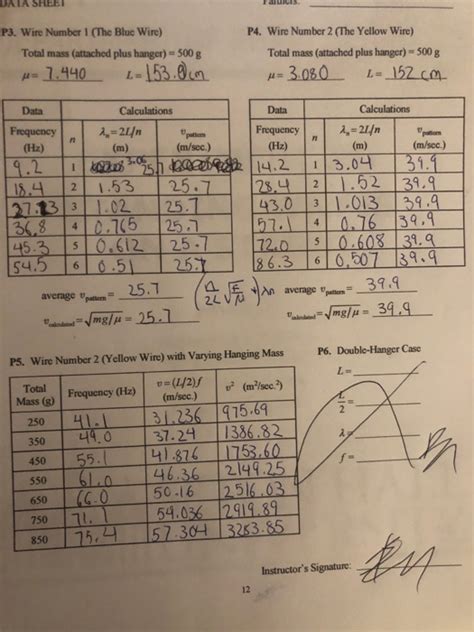 DATA SHEET Partners:
P3. Wire Number 1 (The Blue Wire)
Total mass (attached plus hanger) = 500 g
μ = 7.440 L = 153.0 cm
Data Calculations
Frequency (Hz) n λn = 2L/n (m) υpattern (m/sec.)
9.2 1 3.06 25.7
18.4 2 1.53 25.7
3 1.02 25.7
36.8 4 0.765 25.7
45.3 5 0.612 25.7
54.5 6 0.51 25.7
average υpattern = 25.7
υcalculated = √mg/μ = 25.7
P4. Wire Number 2 (The Yellow Wire)
Total mass (attached plus hanger) = 500 g
μ = 3.080 L = 152 cm
Data Calculations
Frequency (Hz) n λn = 2L/n (m) υpattern (m/sec.)
14.2 1 3.04 39.9
28.4 2 1.52 39.9
43.0 3 1.013 39.9
57.1 4 0.76 39.9
72.0 5 0.608 39.9
86.3 6 0.507 39.9
average υpattern = 39.9
υcalculated = √mg/μ = 39.9
P5. Wire Number 2 (Yellow Wire) with Varying Hanging Mass
Total Mass (g) Frequency (Hz) υ = (L/2)f (m/sec.) υ² (m²/sec.²)
250 41.1 31.236 975.69
350 49.0 37.24 1386.82
450 55.1 41.876 1753.60
550 61.0 46.36 2149.25
650 66.0 50.16 2516.03
750 71.1 54.036 2919.89
850 75.4 57.304 3283.85
P6. Double-Hanger Case
L =
L/2 =
λ =
f =
Instructor's Signature:
12